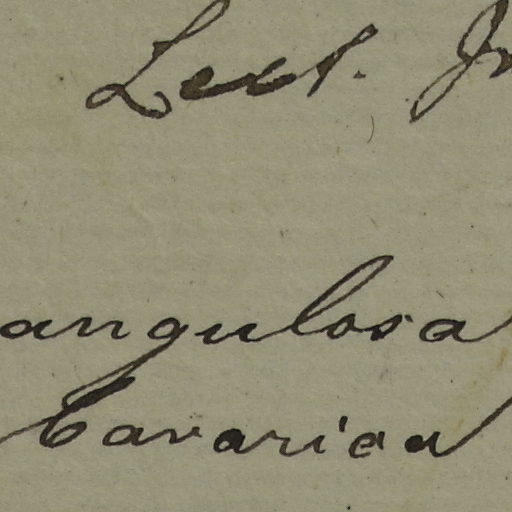 Lect.
angulosa
bavarica